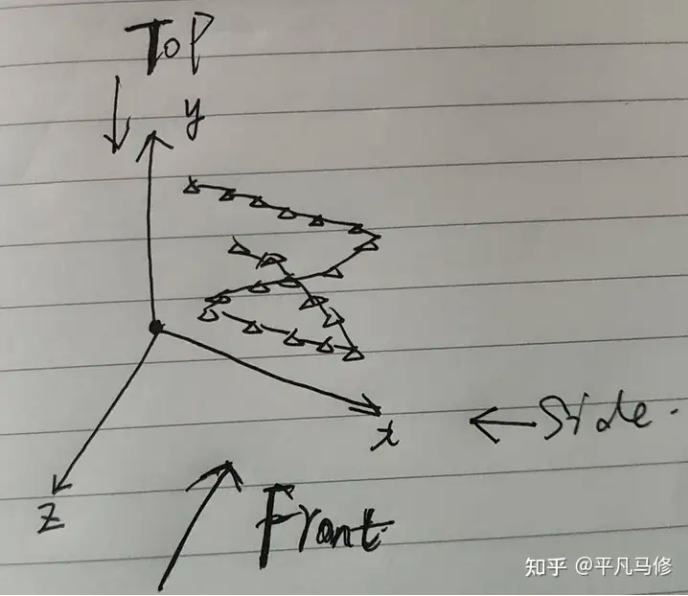 TOP
y
x
Side.
z
Front.
知乎 @平凡马修